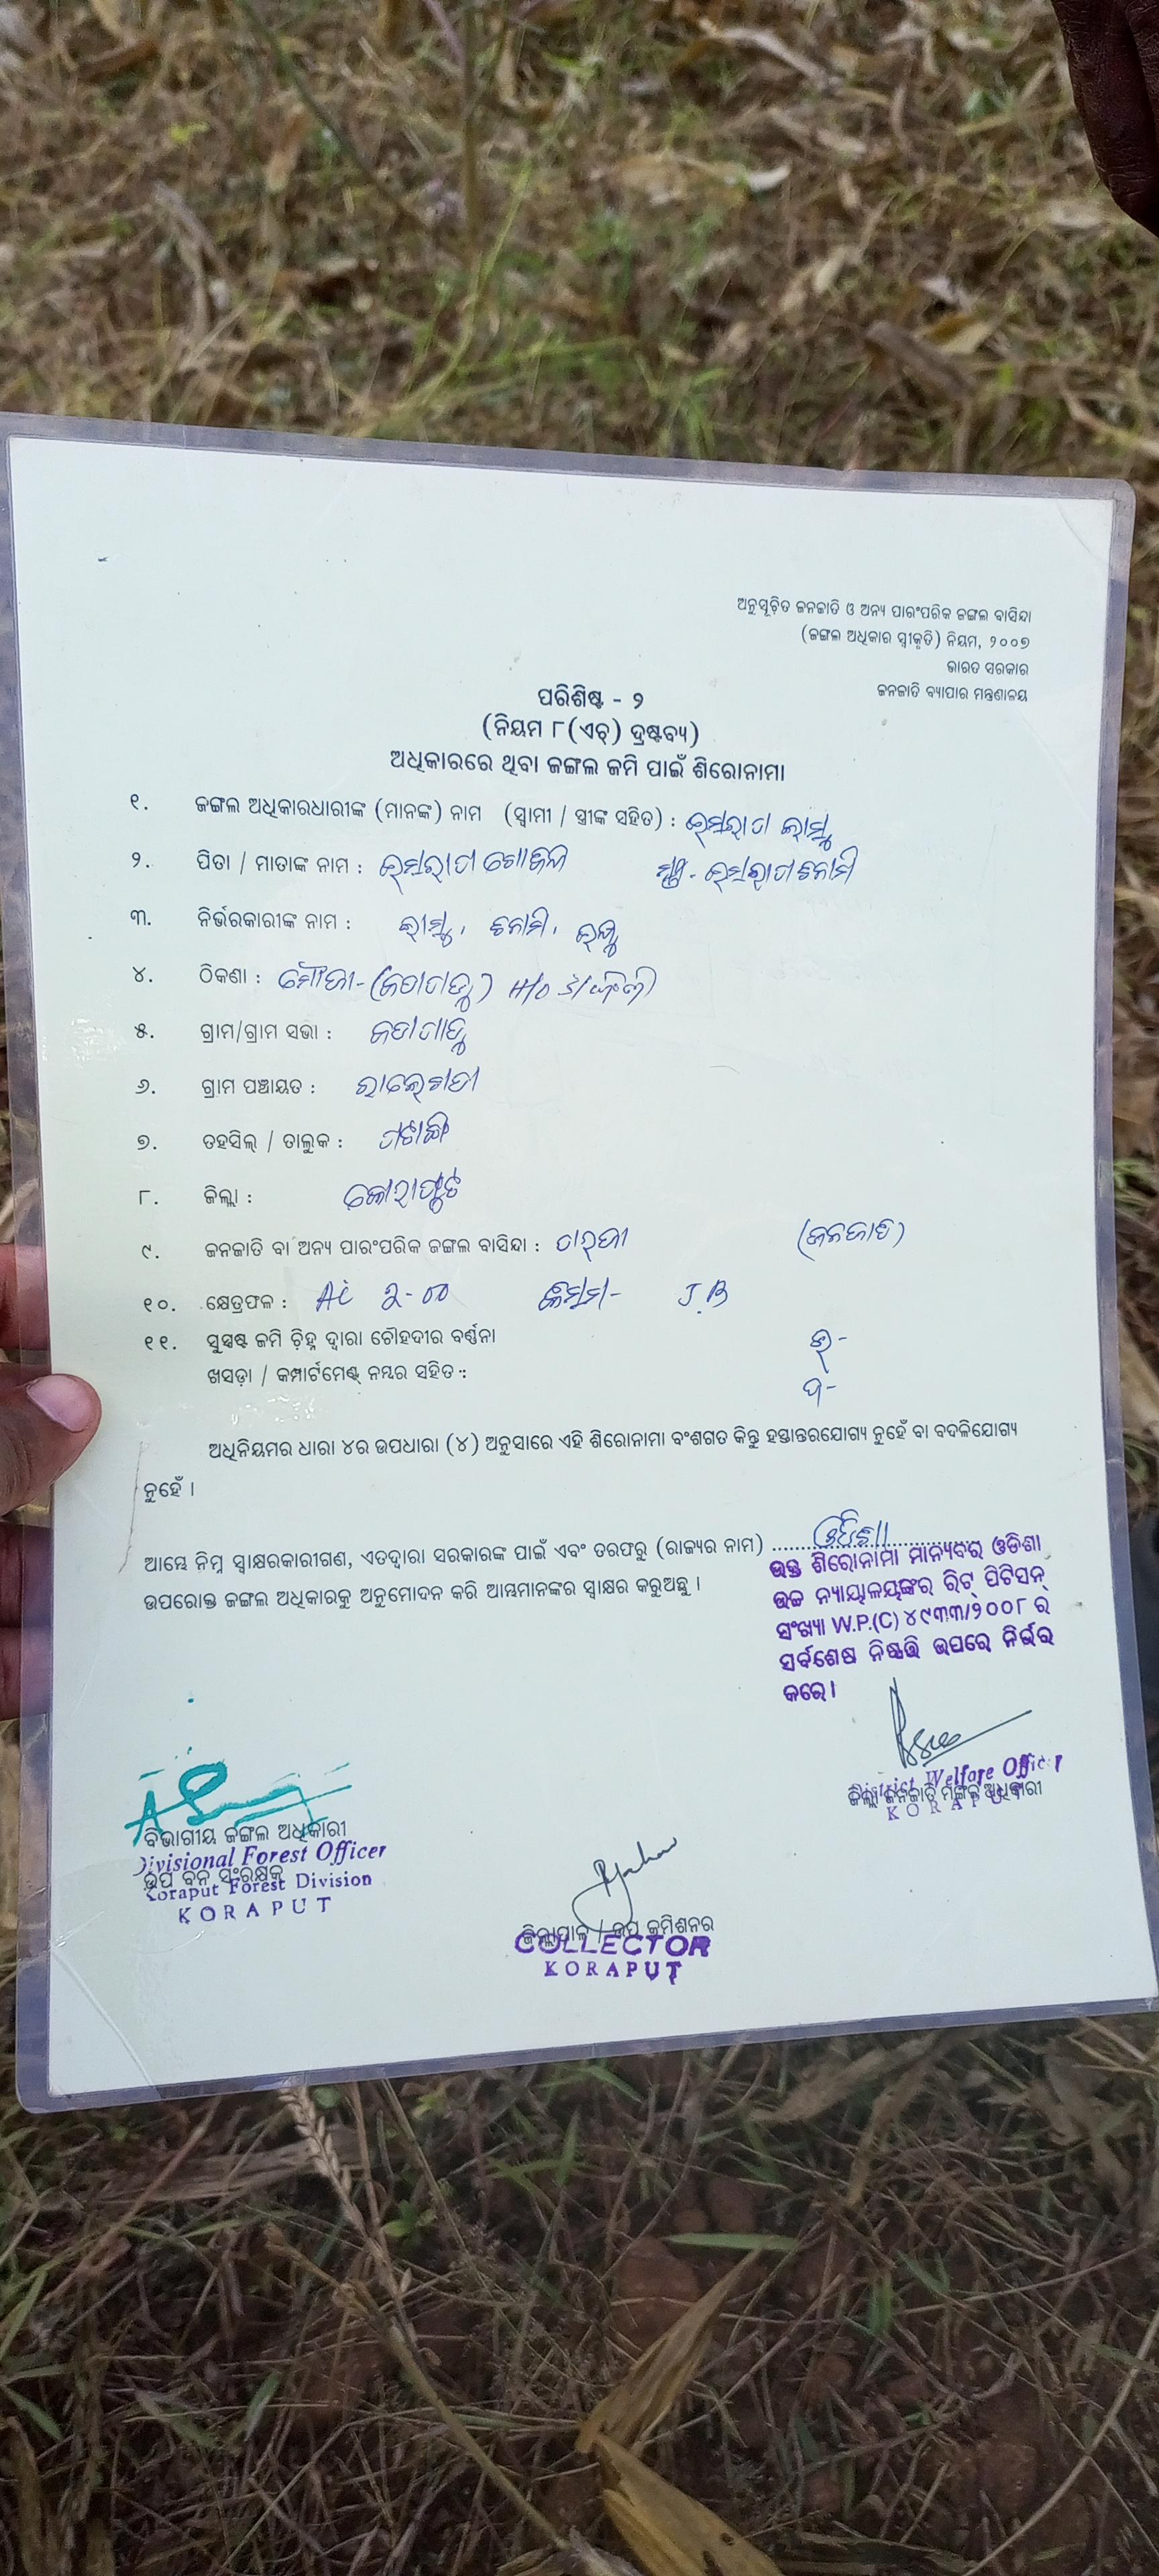 ଅନୁସୂଚିତ ଜନଜାତି ଓ ଅନ୍ୟ ପାରଂପରିକ ଜଙ୍ଗଲ ବାସିନ୍ଦା
(ଜଙ୍ଗଲ ଅଧିକାର ସ୍ୱୀକୃତି) ନିୟମ, ୨୦୦୭
ଭାରତ ସରକାର
ଜନଜାତି ବ୍ୟାପାର ମନ୍ତ୍ରଣାଳୟ
ପରିଶିଷ୍ଟ - ୨
(ନିୟମ ୮(ଏଚ୍) ଦ୍ରଷ୍ଟବ୍ୟ)
ଅଧିକାରରେ ଥିବା ଜଙ୍ଗଲ ଜମି ପାଇଁ ଶିରୋନାମା
୧. ଜଙ୍ଗଲ ଅଧିକାରଧାରୀଙ୍କ (ମାନଙ୍କ) ନାମ (ସ୍ୱାମୀ / ସ୍ତ୍ରୀଙ୍କ ସହିତ) :
୨. ପିତା / ମାତାଙ୍କ ନାମ :
୩. ନିର୍ଭରକାରୀଙ୍କ ନାମ :
୪. ଠିକଣା : ମୌଜା-
୫. ଗ୍ରାମ/ଗ୍ରାମ ସଭା :
୬. ଗ୍ରାମ ପଞ୍ଚାୟତ :
୭. ତହସିଲ୍ / ତାଲୁକ :
୮. ଜିଲ୍ଲା : କୋରାପୁଟ
୯. ଜନଜାତି ବା ଅନ୍ୟ ପାରଂପରିକ ଜଙ୍ଗଲ ବାସିନ୍ଦା : (ଜନଜାତି)
୧୦. କ୍ଷେତ୍ରଫଳ : Ac ୨-୦୦ କିସମ- J.B
୧୧. ସୁସ୍ପଷ୍ଟ ଜମି ଚିହ୍ନ ଦ୍ୱାରା ଚୌହଦୀର ବର୍ଣ୍ଣନା ଉ-
ଖସଡ଼ା / କମ୍ପାର୍ଟମେଣ୍ଟ୍ ନମ୍ବର ସହିତ : ଦ-
ଅଧିନିୟମର ଧାରା ୪ର ଉପଧାରା (୪) ଅନୁସାରେ ଏହି ଶିରୋନାମା ବଂଶଗତ କିନ୍ତୁ ହସ୍ତାନ୍ତରଯୋଗ୍ୟ ନୁହେଁ ବା ବଦଳିଯୋଗ୍ୟ
ନୁହେଁ ।
ଆମ୍ଭେ ନିମ୍ନ ସ୍ୱାକ୍ଷରକାରୀଗଣ, ଏତଦ୍ୱାରା ସରକାରଙ୍କ ପାଇଁ ଏବଂ ତରଫରୁ (ରାଜ୍ୟର ନାମ) ଓଡ଼ିଶା
ଉପରୋକ୍ତ ଜଙ୍ଗଲ ଅଧିକାରକୁ ଅନୁମୋଦନ କରି ଆମ୍ଭମାନଙ୍କର ସ୍ୱାକ୍ଷର କରୁଅଛୁ ।
ଉକ୍ତ ଶିରୋନାମା ମାନ୍ୟବର ଓଡିଶା
ଉଚ୍ଚ ନ୍ୟାୟାଳୟଙ୍କର ରିଟ୍ ପିଟିସନ୍
ସଂଖ୍ୟା W.P.(C) ୪୯୩୩/୨୦୦୮ ର
ସର୍ବଶେଷ ନିଷ୍ପତ୍ତି ଉପରେ ନିର୍ଭର
କରେ।
District Welfare Officer
ଜିଲ୍ଲା ଜନଜାତି ମଙ୍ଗଳ ଅଧିକାରୀ
KORAPUT
ବିଭାଗୀୟ ଜଙ୍ଗଲ ଅଧିକାରୀ
Divisional Forest Officer
ଉପ ବନ ସଂରକ୍ଷକ
Koraput Forest Division
KORAPUT
ଜିଲ୍ଲାପାଳ / ଉପ କମିଶନର
COLLECTOR
KORAPUT